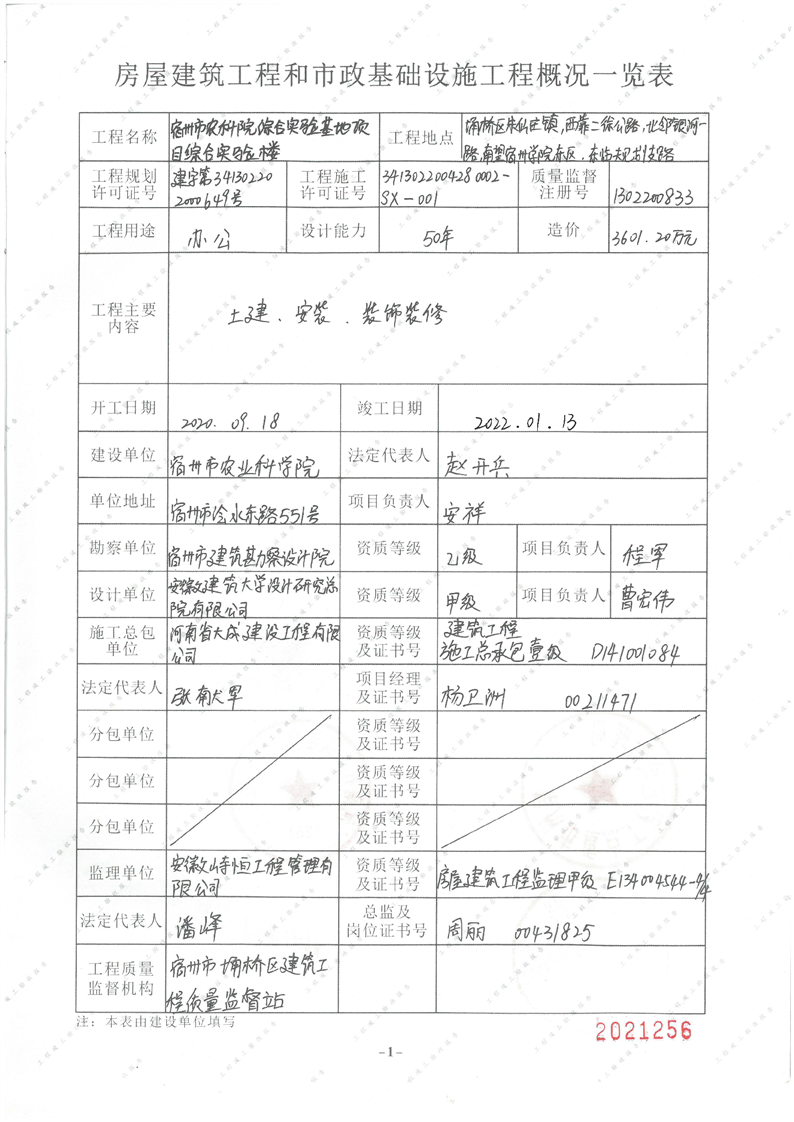 房屋建筑工程和市政基础设施工程概况一览表
工程名称 宿州市农科院综合实验基地项目综合实验楼 工程地点 埇桥区朱仙庄镇,西靠二徐公路,北邻银河一路,南望宿州学院东区,东临
工程规划许可证号 建字第341302202000649号 工程施工许可证号 3413022004280002-SX-001 质量监督注册号 1302200833
工程用途 办公 设计能力 50年 造价 3601.20万元
工程主要内容 土建、安装、装饰装修
开工日期 2020.09.18 竣工日期 2022.01.13
建设单位 宿州市农业科学院 法定代表人 赵开兵
单位地址 宿州市汴水东路551号 项目负责人 安祥
勘察单位 宿州市建筑勘察设计院 资质等级 乙级 项目负责人 程军
设计单位 安徽建筑大学设计研究总院有限公司 资质等级 甲级 项目负责人 曹宏伟
施工总包单位 河南省大成建设工程有限公司 资质等级及证书号 建筑工程施工总承包壹级 D141001084
法定代表人 张献军 项目经理及证书号 杨卫洲 00211471
分包单位 资质等级及证书号
分包单位 资质等级及证书号
分包单位 资质等级及证书号
监理单位 安徽峙恒工程管理有限公司 资质等级及证书号 房屋建筑工程监理甲级 E134004544-4/4
法定代表人 潘峰 总监及岗位证书号 周丽 00431825
工程质量监督机构 宿州市埇桥区建筑工程质量监督站
注:本表由建设单位填写
2021256
-1-